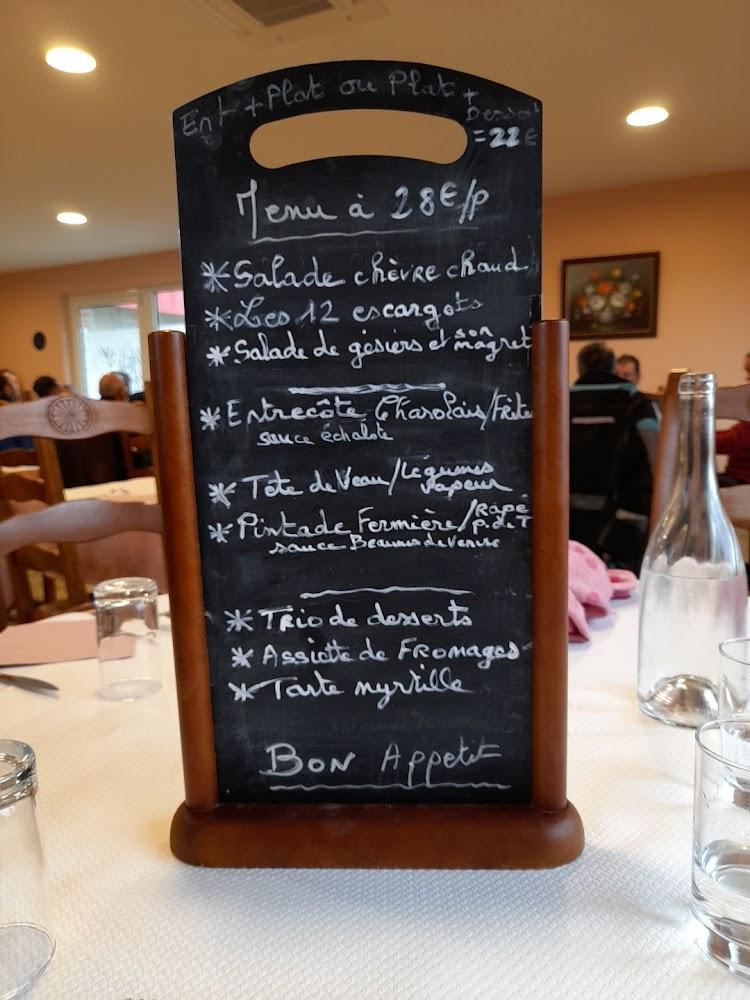 Ent + Plat ou Plat + Dessert
= 22€
Menu à 28€/p
* Salade chèvre chaud
* Les 12 escargots
* Salade de gésiers et son magret
* Entrecôte Charolais/Frite
sauce échalote
* Tete de Veau/Légumes vapeur
* Pintade Fermière/Rapé P. de T
sauce Beaumes de Venise
* Trio de desserts
* Assiette de Fromages
* Tarte myrtille
Bon Appetit